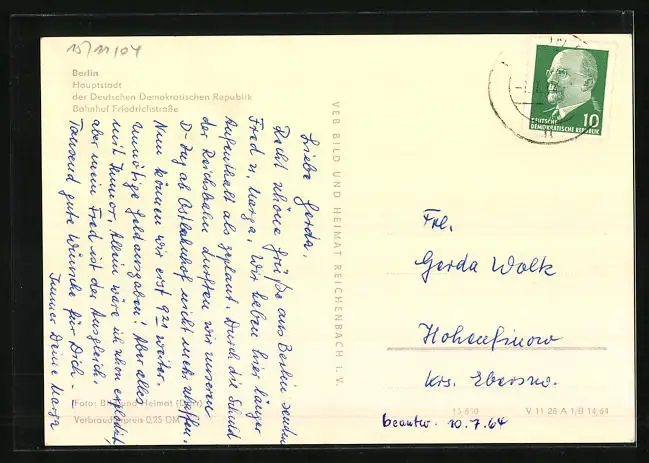 15/11/04
Berlin
Hauptstadt
der Deutschen Demokratischen Republik
Bahnhof Friedrichstraße
Liebe Gerda,
Recht schöne Grüße aus Berlin senden
Fred u. Marga. Wir haben hier länger
Aufenthalt als geplant. Durch die Schuld
der Reichsbahn durften wir unseren
D-Zug ab Ostbahnhof nicht mehr
Nun können wir erst 921 weiter.
Unnötige Geldausgaben! Aber alles
mit Humor. Allein wäre ich schon
aber mein Fred ist der Ausgleich.
Tausend gute Wünsche für Dich.
Immer Deine Marga
Foto: Bild und Heimat
Verbraucherpreis 0,25 DM
VEB BILD UND HEIMAT REICHENBACH I. V.
DEUTSCHE
DEMOKRATISCHE REPUBLIK
10
Frl.
Gerda Wolk
Hohenfinow
Krs. Ebersw.
V 11 28 A 1/B 14/64
beantw. 10.7.64